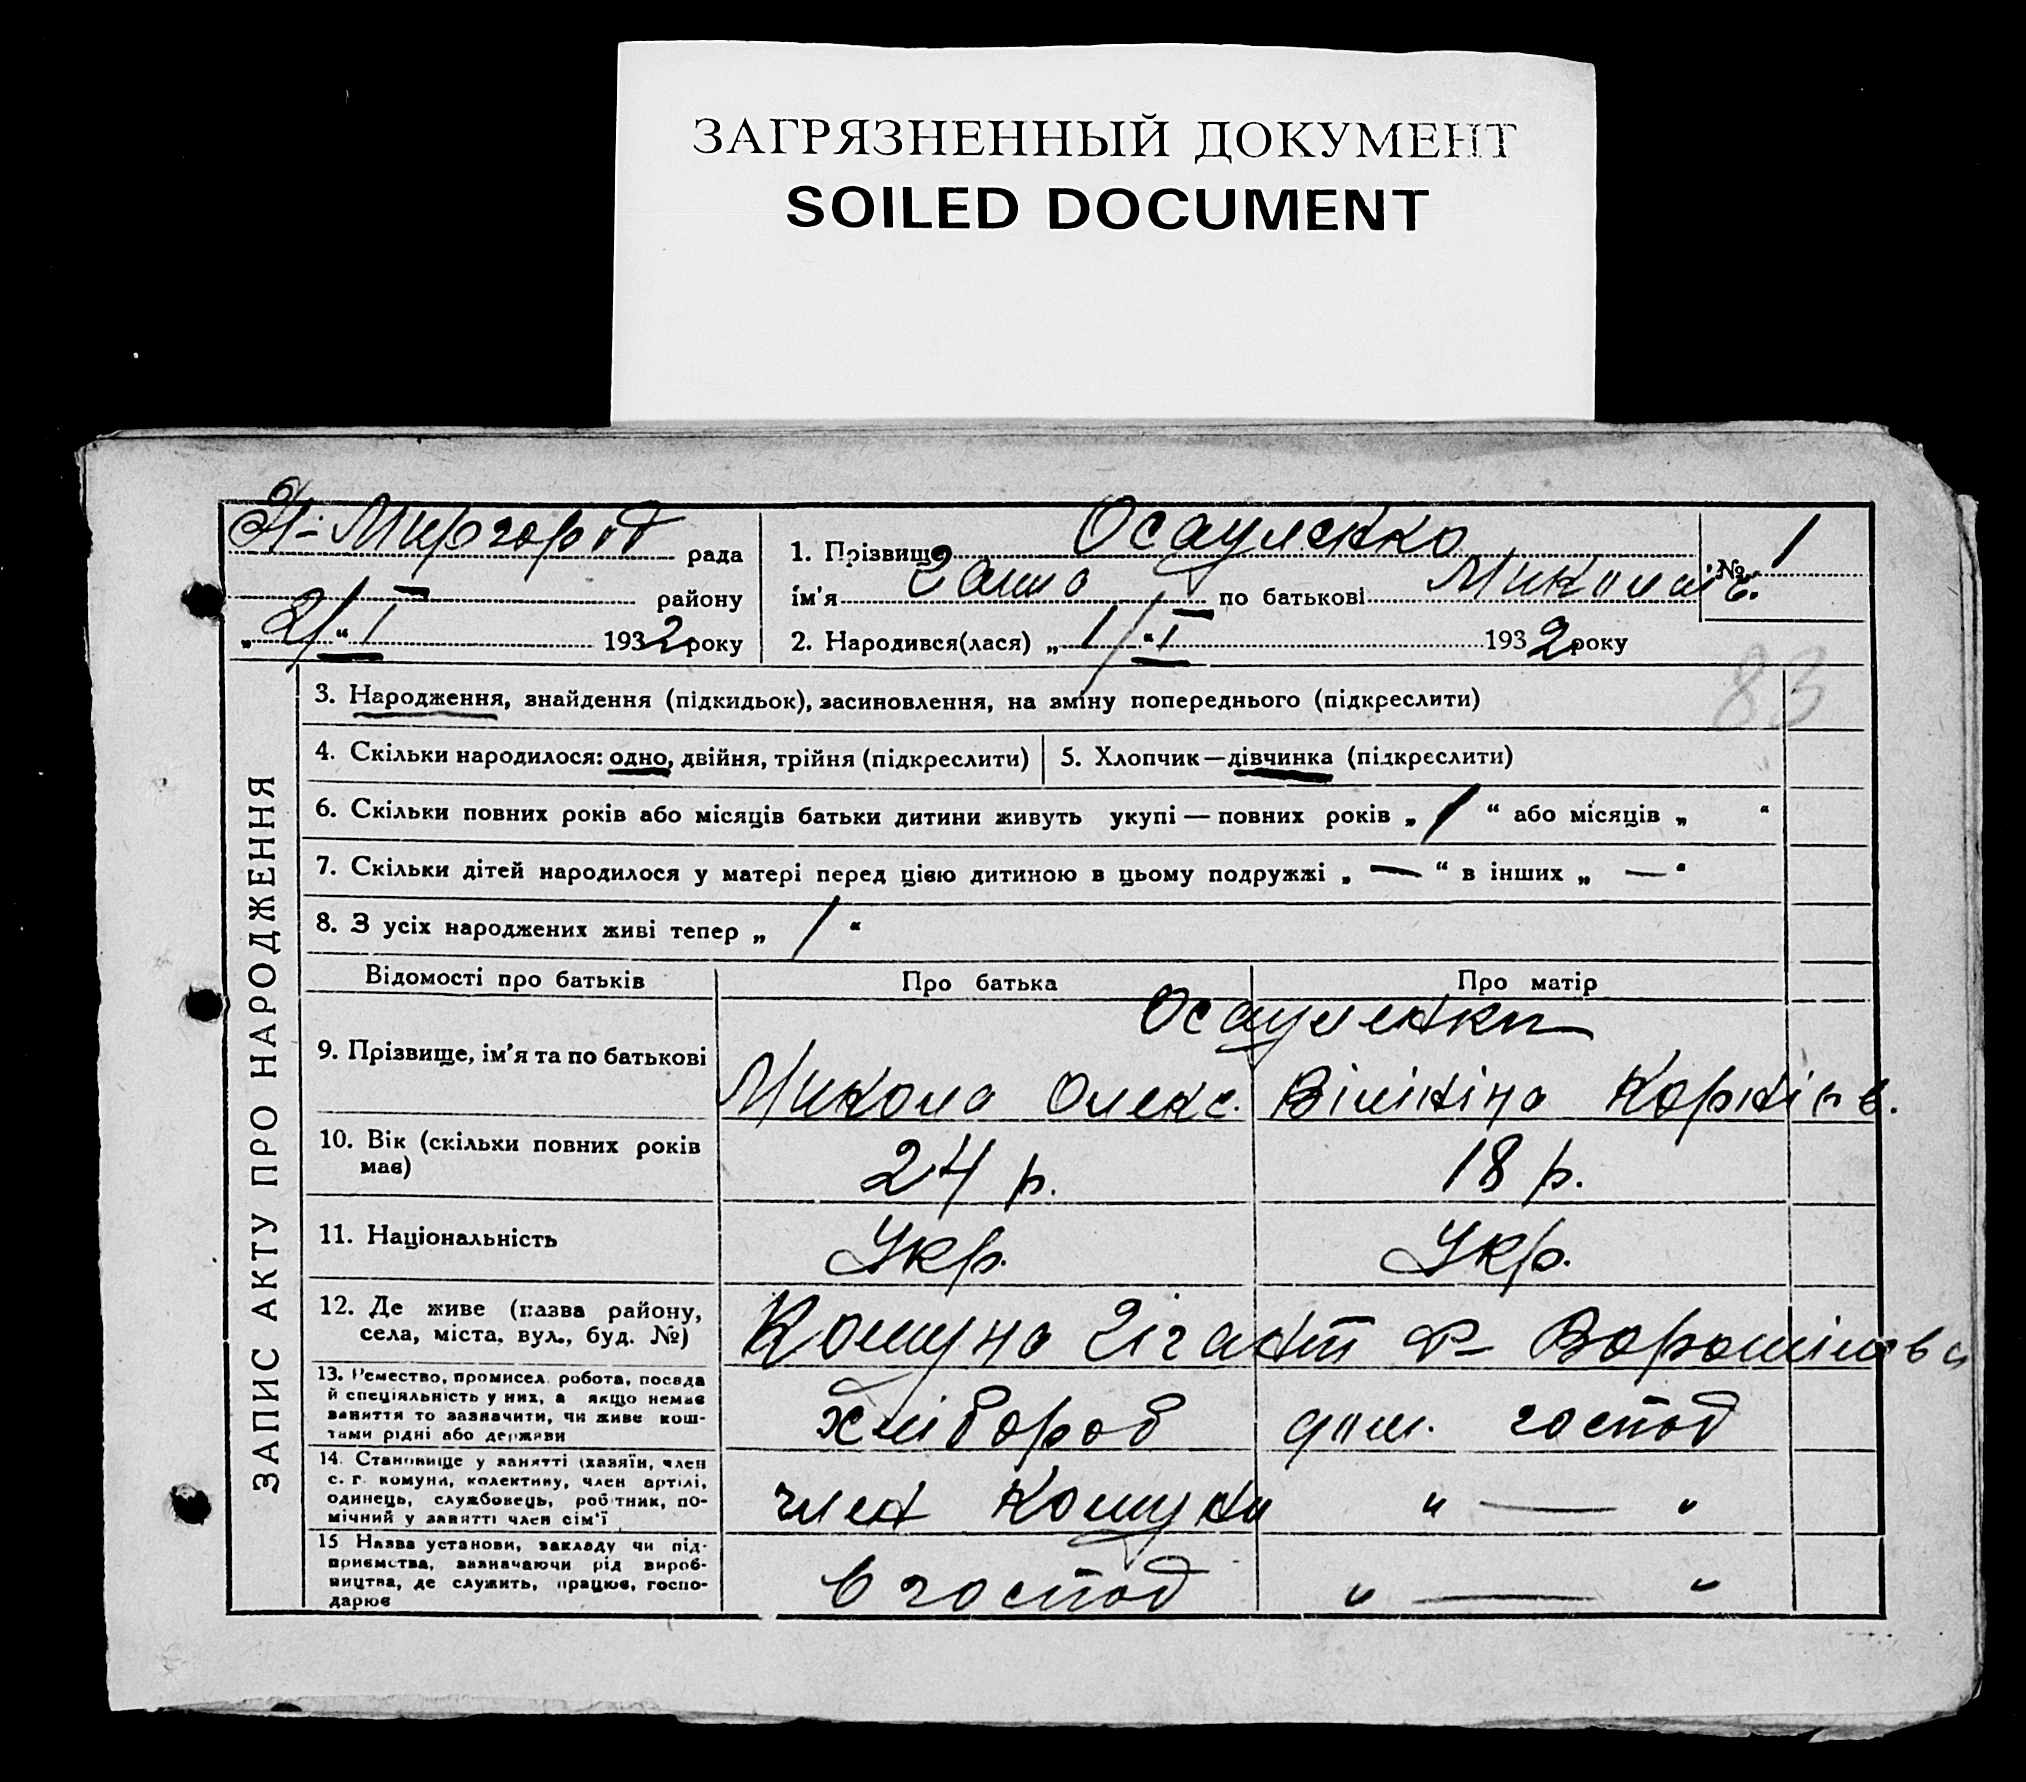 ЗАГРЯЗНЕННЫЙ ДОКУМЕНТ
SOILED DOCUMENT
Н-Миргород рада
району
„2/“ I 1932 року
1. Прізвище Осауленко
ім'я Ганна по батькові Микол.
2. Народився(лася) „1/“ I 1932 року
№ 1
83
ЗАПИС АКТУ ПРО НАРОДЖЕННЯ
3. Народження, знайдення (підкидьок), засиновлення, на зміну попереднього (підкреслити)
4. Скільки народилося: одно, двійня, трійня (підкреслити)
5. Хлопчик—дівчинка (підкреслити)
6. Скільки повних років або місяців батьки дитини живуть укупі — повних років „ 1 “ або місяців „ “
7. Скільки дітей народилося у матері перед цією дитиною в цьому подружжі „ — “ в інших „ — “
8. З усіх народжених живі тепер „ 1 “
Відомості про батьків Про батька Про матір
Осауленки
9. Прізвище, ім'я та по батькові Микола Олекс.
10. Вік (скільки повних років має) 24 р. 18 р.
11. Національність Укр. Укр.
12. Де живе (назва району, села, міста, вул., буд. №) Комуна Гігант Ворошилова
13. Ремество, промисел. робота, посада й спеціяльність у них, а якщо немає заняття то зазначити, чи живе коштами рідні або держави хлібороб дом. господ
14. Становище у занятті (хазяїн, член с. г. комуни, колективу, член артілі, одинець, службовець, робітник, помічний у занятті член сім'ї член комуни „ — “
15 Назва установи, закладу чи підприємства, зазначаючи рід виробництва, де служить, працює, господарює в господ „ — “